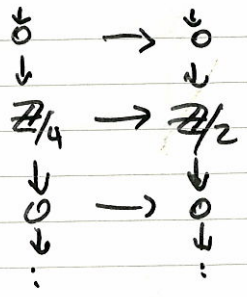 ↓ ↓
0 → 0
↓ ↓
ℤ/4 → ℤ/2
↓ ↓
0 → 0
↓ ↓
⋮ ⋮